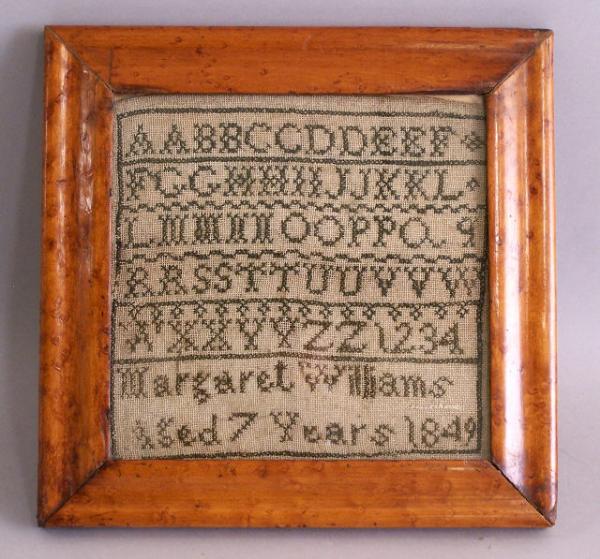 AABBCCDDEEF
FGGHHIIJJKKL
LMMNNOOPPQq
RRSSTTUUVVW
WXXYYZZ1234
Margaret Williams
Aged 7 Years 1849